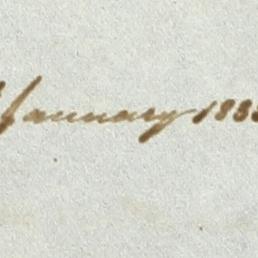 January 1838